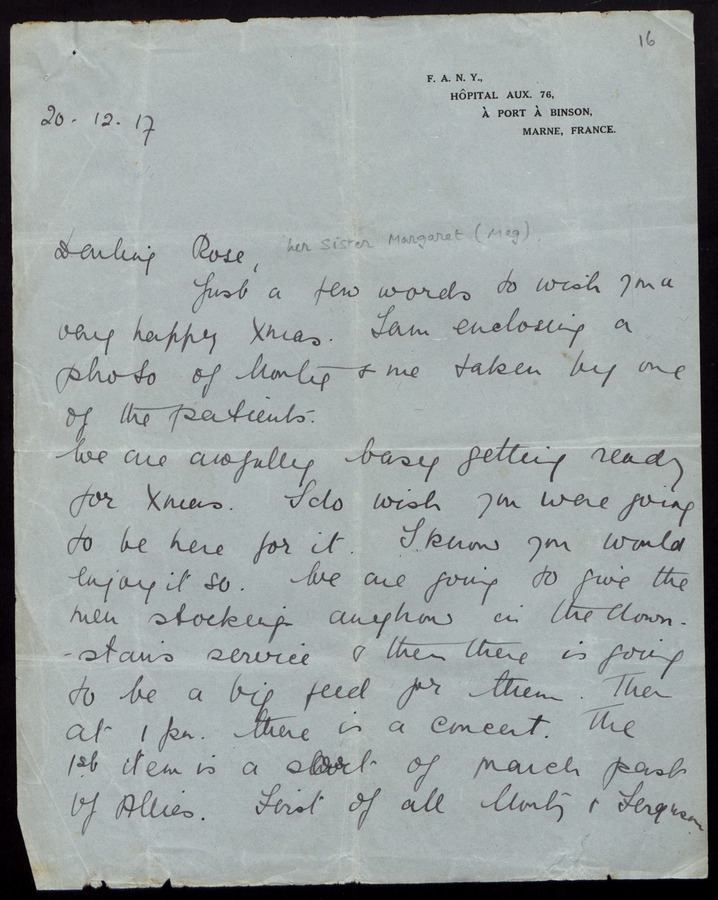 16
F. A. N. Y.,
HÔPITAL AUX. 76,
À PORT À BINSON,
MARNE, FRANCE.
20. 12. 17
Darling Rose,
her sister Margaret (Meg)
Just a few words to wish you a
very happy Xmas. I am enclosing a
photo of Monty & me taken by one
of the patients.
We are awfully busy getting ready
for Xmas. I do wish you were going
to be here for it. I know you would
enjoy it so. We are going to give the
men stockings anyhow in the down-
-stairs service & then there is going
to be a big feed for them. Then
at 1 pm. there is a concert. The
1st item is a sort of march past
of Allies. First of all Monty & Ferguson